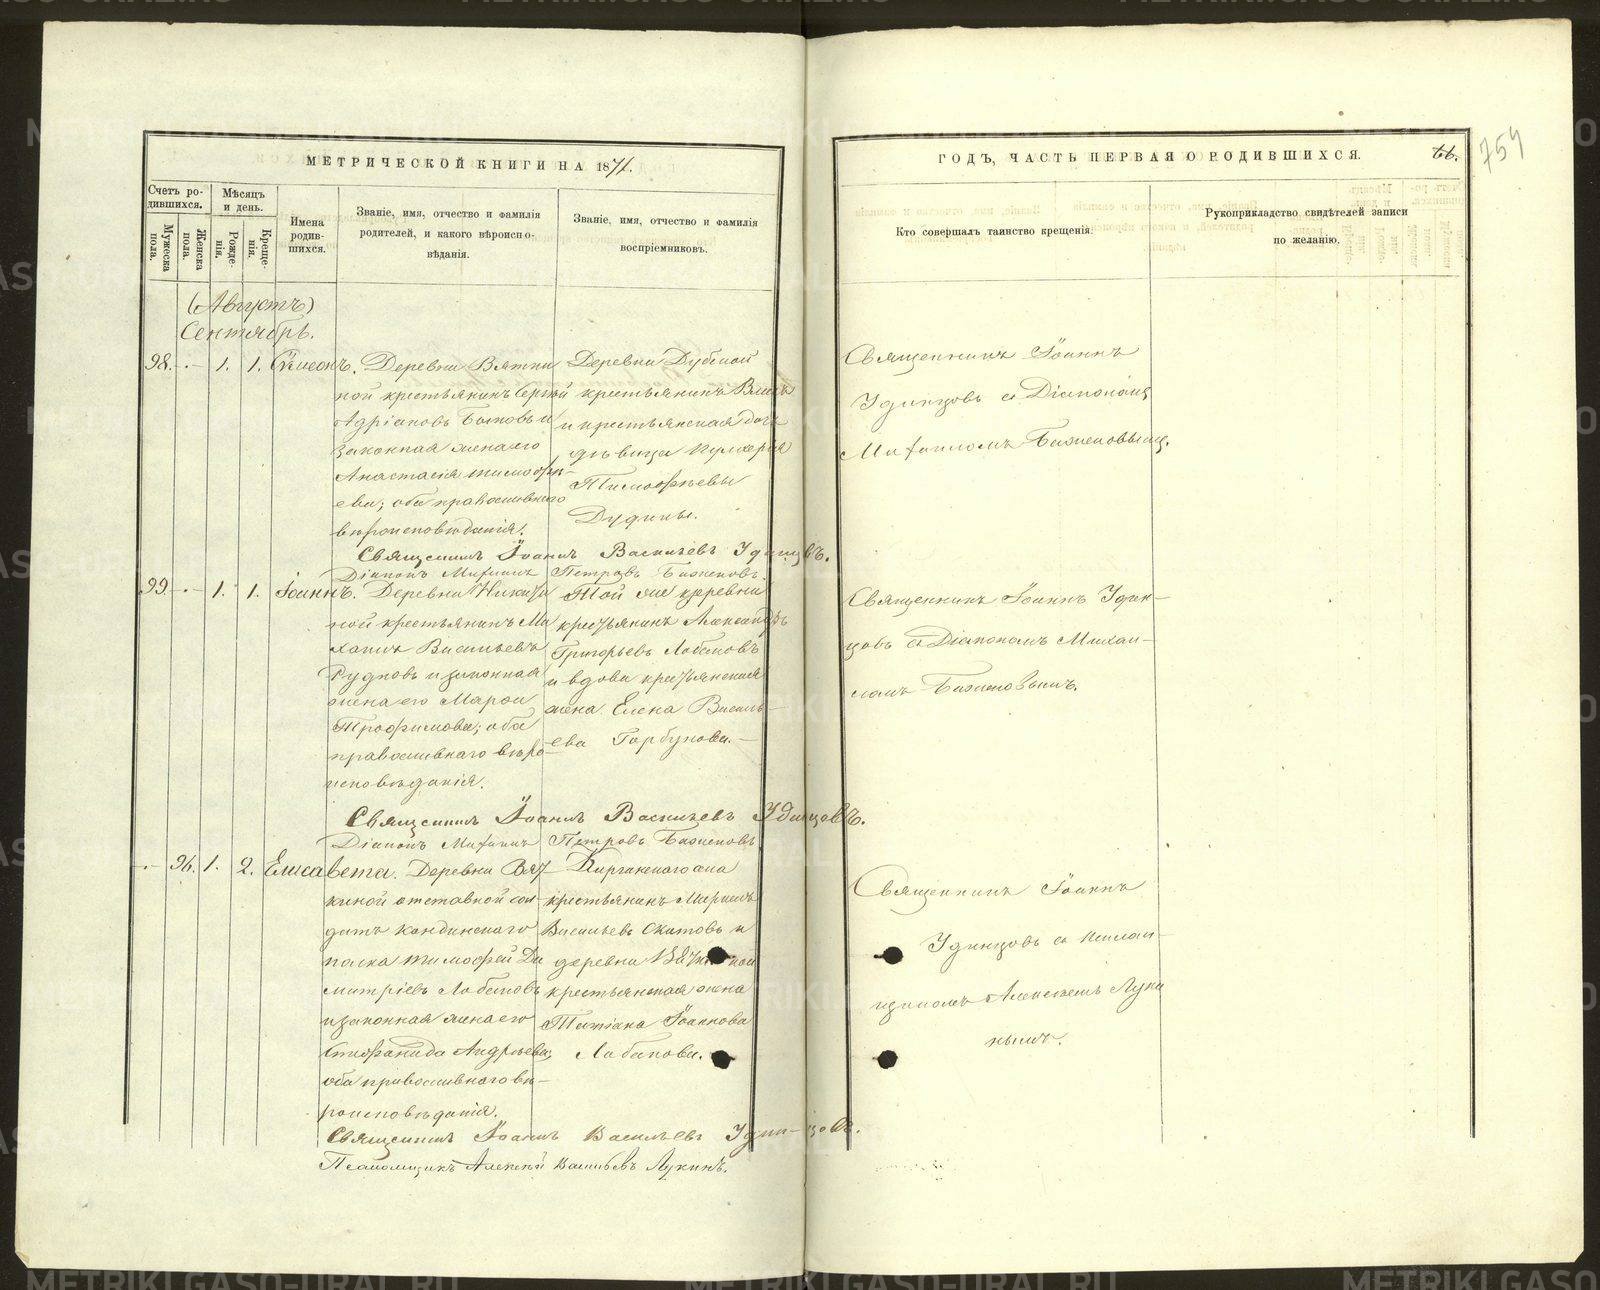 МЕТРИЧЕСКОЙ КНИГИ НА 1871.
Счетъ родившихся.
Мужеска пола.
Женска пола.
Мѣсяцъ и день.
Рожденія.
Крещенія.
Имена родившихся.
Званіе, имя, отчество и фамилія
родителей, и какого вѣроиспо-
вѣданія.
Званіе, имя, отчество и фамилія
воспріемниковъ.
(Августъ)
Сентябрь.
98. - 1. 1. Сѵмеонъ.
Деревни Вятки
ной крестьянинъ Сергѣй
Адріановъ и
законная жена его
Анастасія Тимофѣ-
ева; оба православнаго
вѣроисповѣданія.
Деревни Дубской
крестьянинъ
и крестьянская дочь
дѣвица
Тимофѣевы
Дудины.
Священникъ Іоаннъ Васильевъ Удинцовъ.
Діаконъ Михаилъ Петровъ Баженовъ.
99. - 1. 1. Іоаннъ.
Деревни
ной крестьянинъ Ми
хаилъ Васильевъ
Рудновъ и законная
жена его
Трофимова; оба
православнаго вѣро-
исповѣданія.
Той же деревни
крестьянинъ Александръ
Григорьевъ Лобановъ
и вдова крестьянская
жена Елена Василь-
ева Горбунова.
Священникъ Іоаннъ Васильевъ Удинцовъ.
Діаконъ Михаилъ Петровъ Баженовъ.
- 96. 1. 2. Елисавета.
Деревни Вят-
киной отставной сол-
датъ
полка Тимофей Ди
митріевъ Лобановъ
и законная жена его
Андреева;
оба православнаго вѣ-
роисповѣданія.
крестьянинъ
Васильевъ Скатовъ и
деревни Вяткиной
крестьянская жена
Татіана Іоаннова
Лобанова.
Священникъ Іоаннъ Васильевъ Удинцовъ.
Псаломщикъ Алексѣй Васильевъ Лукинъ.
ГОДЪ, ЧАСТЬ ПЕРВАЯ О РОДИВШИХСЯ.
66.
759
Кто совершалъ таинство крещенія.
Рукоприкладство свидѣтелей записи
по желанію.
Священникъ Іоаннъ
Удинцовъ съ Діакономъ
Михаиломъ Баженовымъ.
Священникъ Іоаннъ Удин-
цовъ съ Діакономъ Михаи-
ломъ Баженовымъ.
Священникъ Іоаннъ
Удинцовъ съ псалом-
щикомъ Алексѣемъ Луки
нымъ.
METRIKI.GASO-URAL.RU